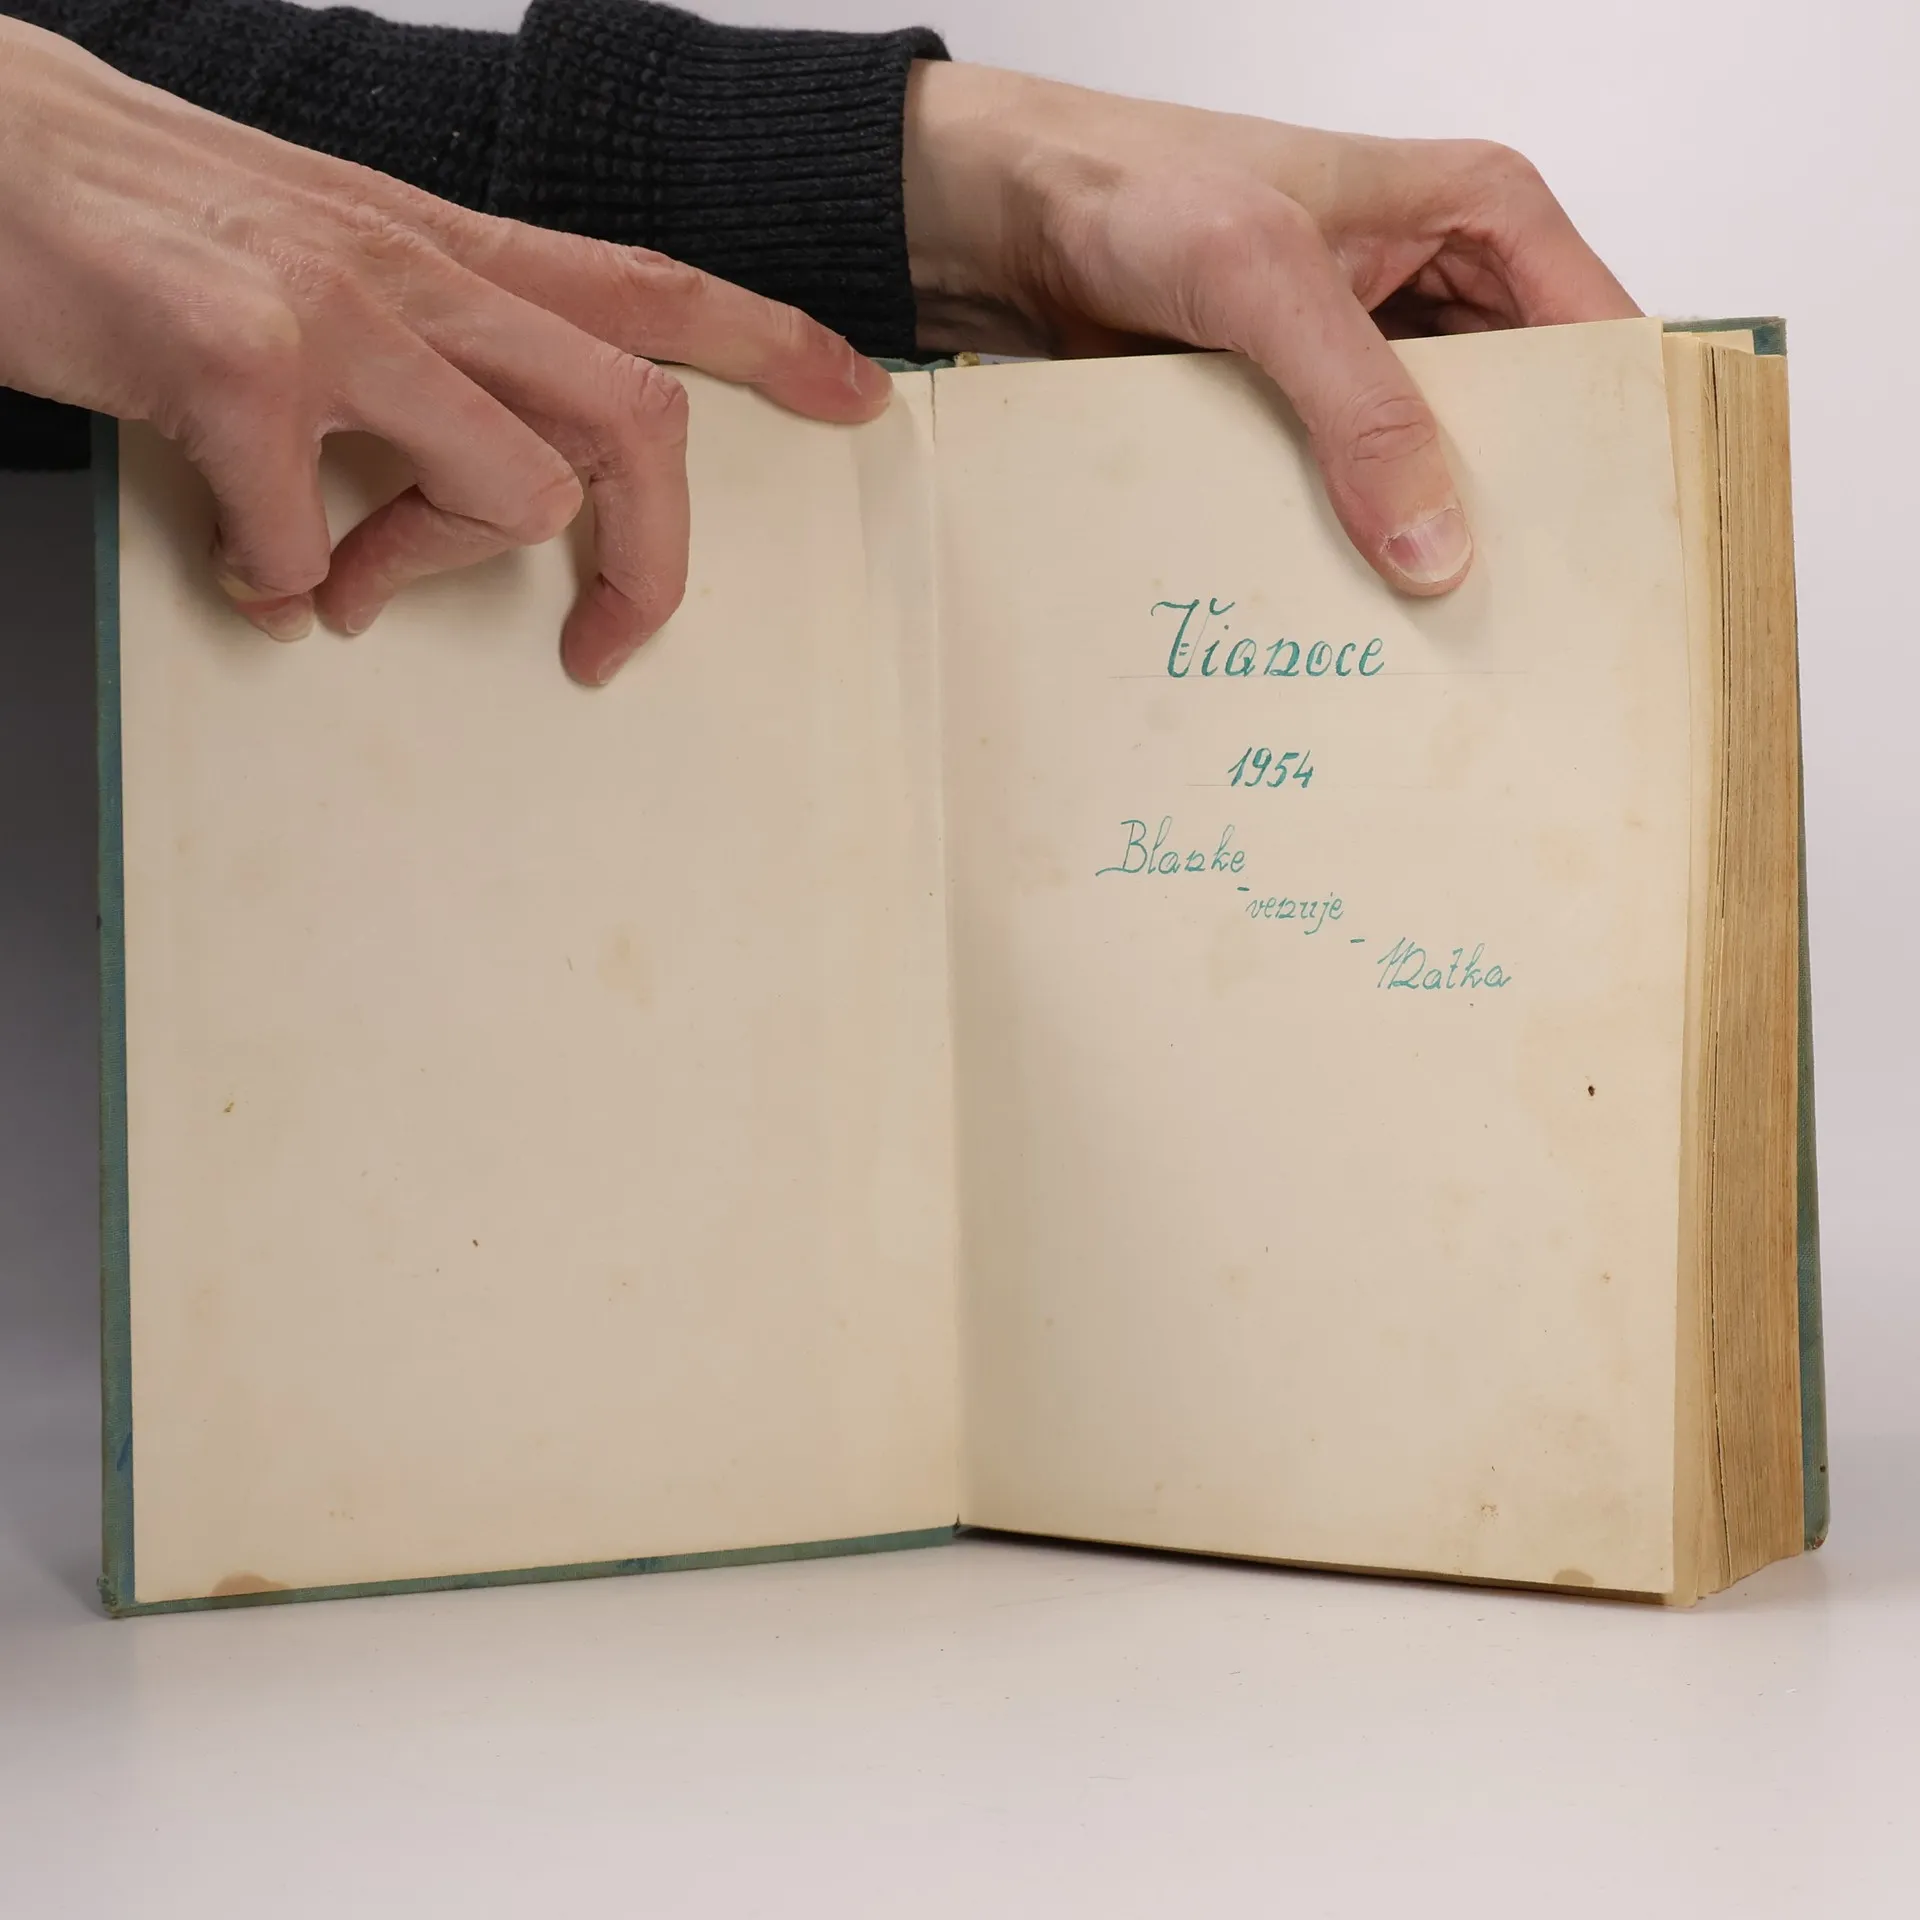 Vianoce
1954
Blanke
- venuje -
Matka